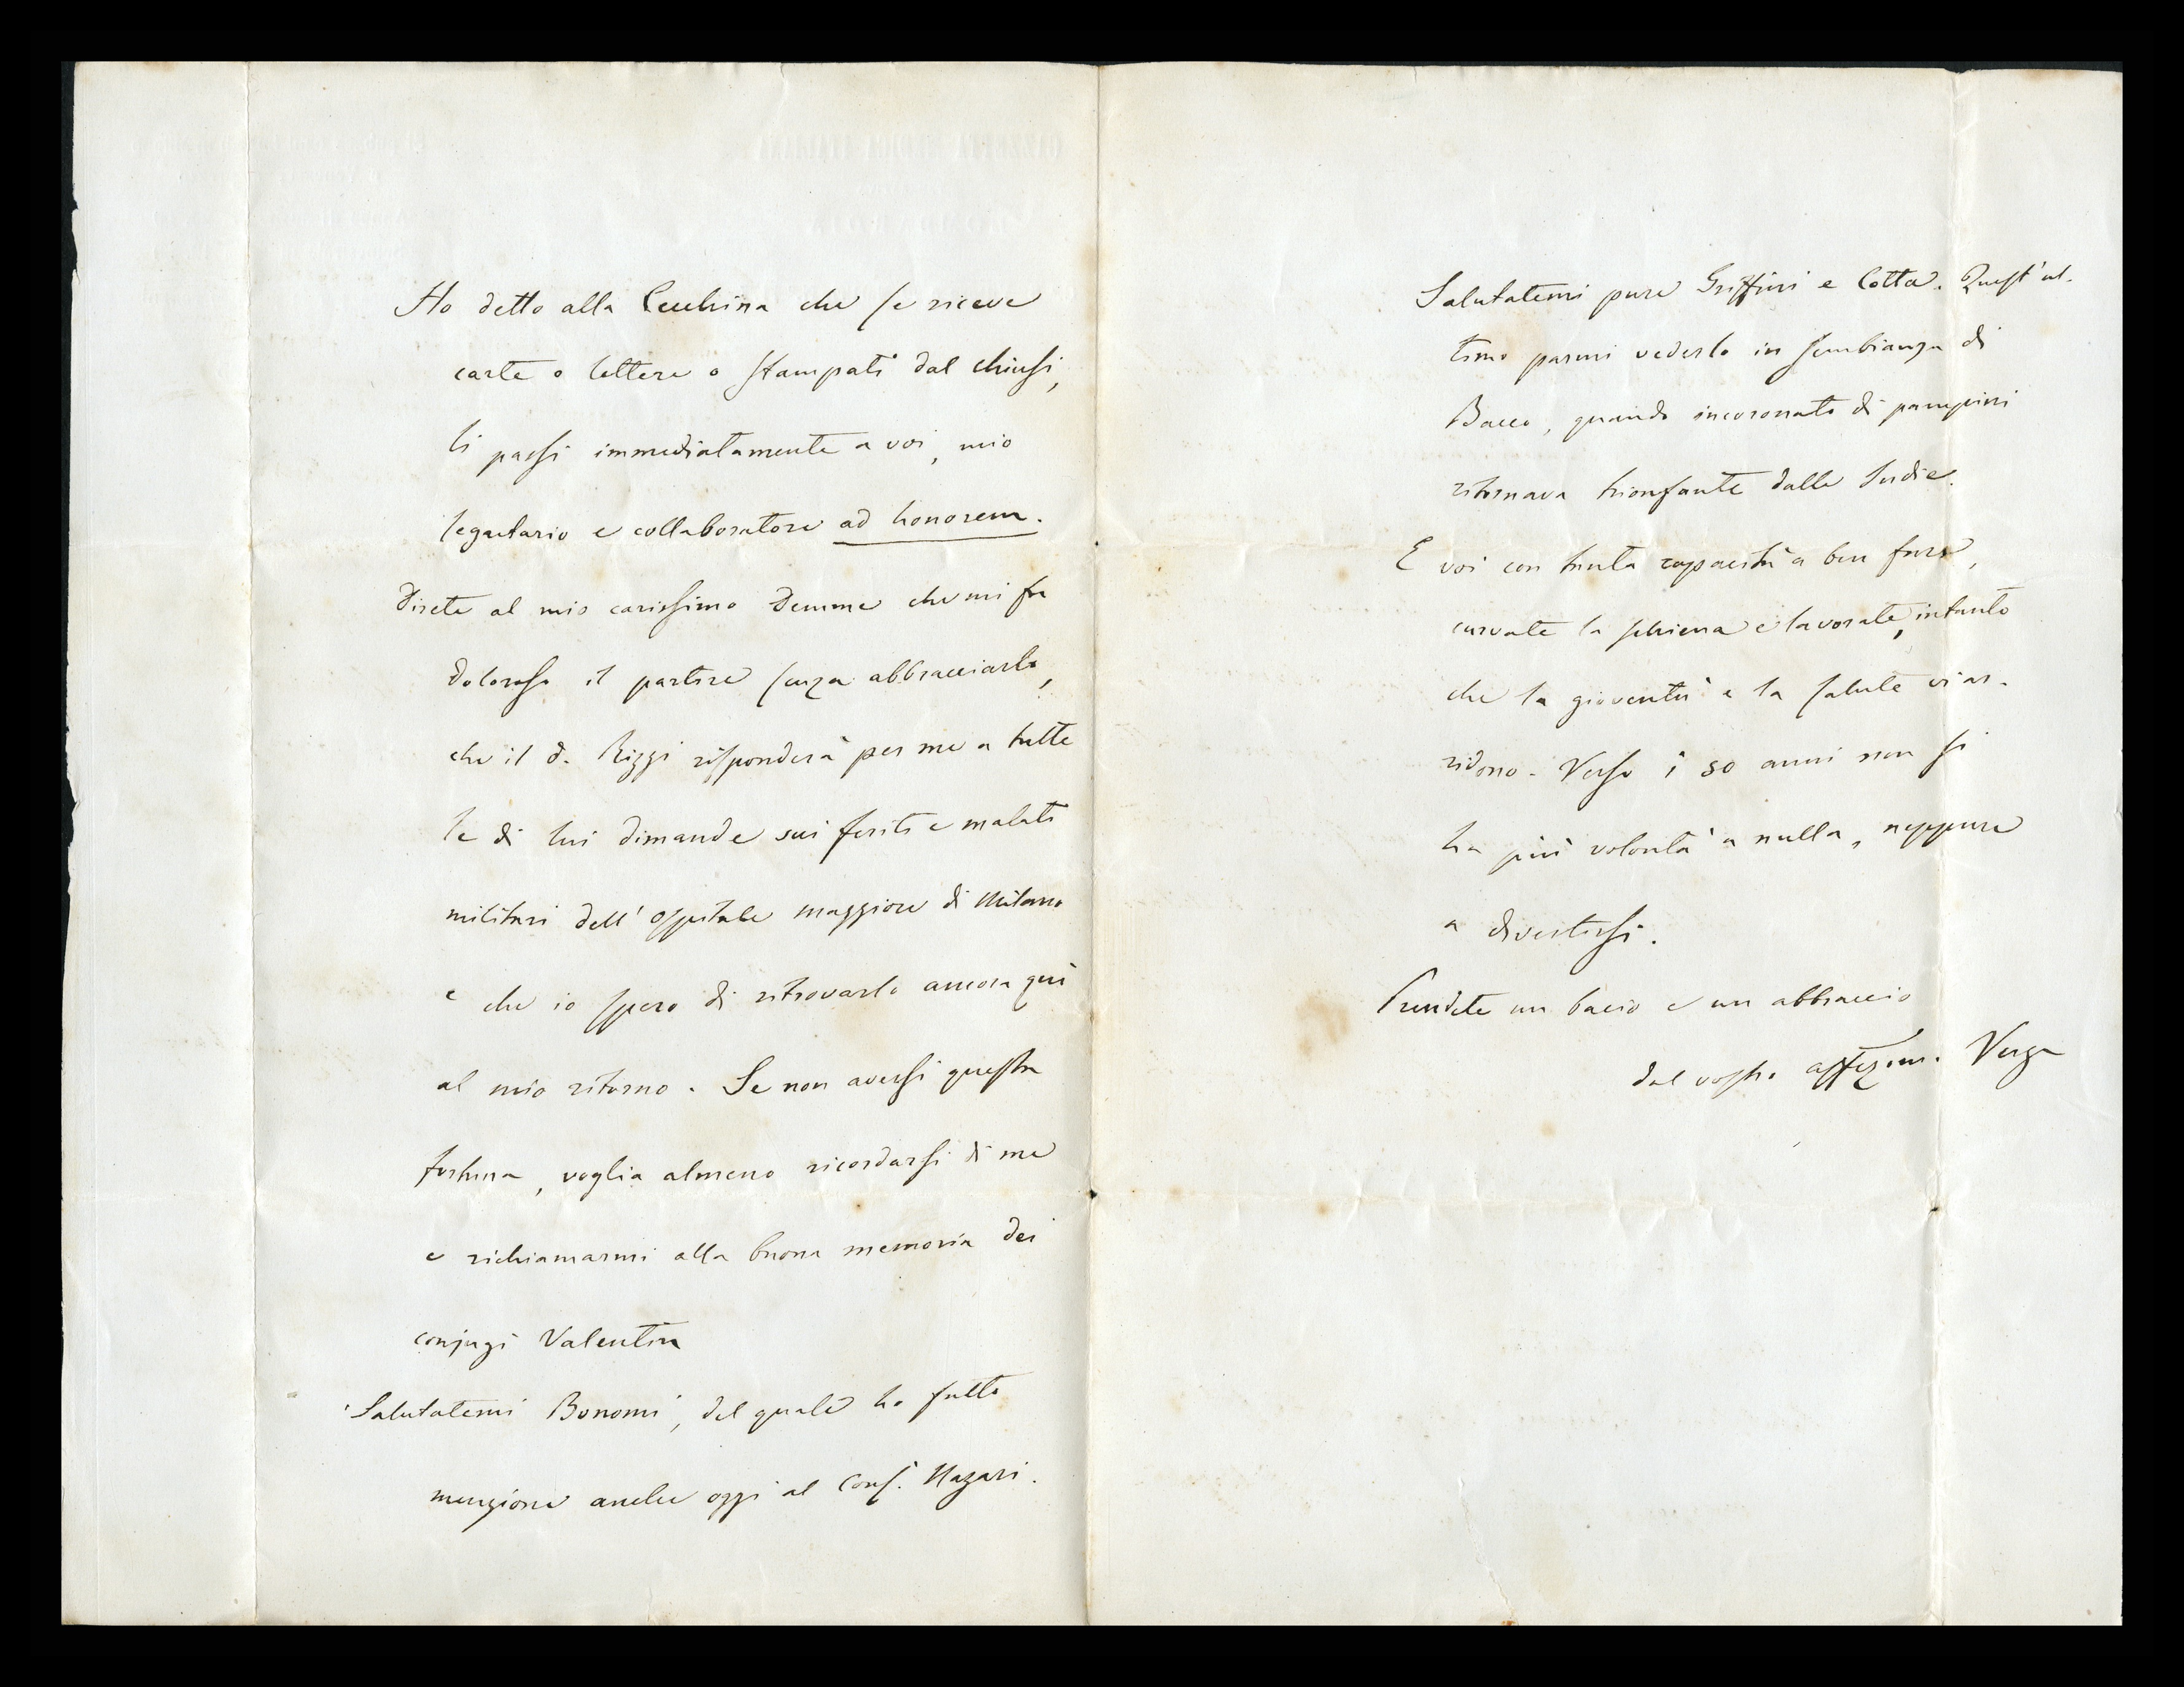 Ho detto alla Cecchina che se riceve
carte o lettere o stampati dal Chiusi,
li passi immediatamente a voi, mio
segretario e collaboratore ad honorem.
Direte al mio carissimo Demme che mi fu
doloroso il partire senza abbracciarlo,
che il d. Rizzi risponderà per me a tutte
le di lui dimande sui feriti e malati
militari dell'Ospitale maggiore di Milano
e che io spero di ritrovarlo ancora quì
al mio ritorno. Se non avessi questa
fortuna, voglia almeno ricordarsi di me
e richiamarmi alla buona memoria dei
conjugi Valentin
Salutatemi Bonomi, del quale ho fatto
menzione anche oggi al Cons. Nazari.
Salutatemi pure Griffini e Cotta. Quest'ul-
timo parmi vederlo in sembianza di
Bacco, quando incoronato di pampini
ritornava trionfante dalle Indie.
E voi con tanta capacità a ben fare,
curvate la schiena e lavorate, intanto
che la gioventù e la salute vi ar-
ridono. Verso i 50 anni non si
ha più volontà a nulla, neppure
a divertirsi.
Prendete un bacio e un abbraccio
dal vostro affezion. Verga